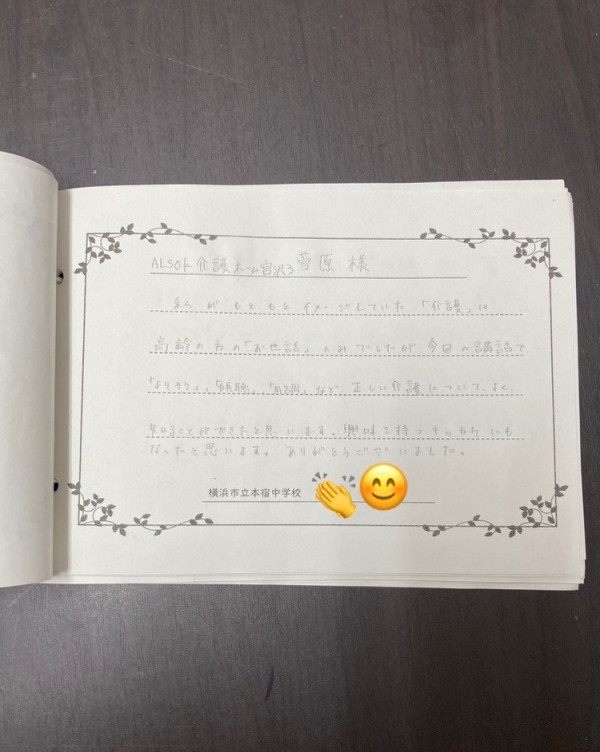 ALSOK介護ホーム宮沢3 菅原 様
私がもともとイメージしていた「介護」は
高齢の方の「お世話」のみでしたが、今回の講話で
「 」、「 」、「 」など、正しい介護について、よく
知ることができたと思います。興味を持つキッカケにも
なったと思います。ありがとうございました。
横浜市立本宿中学校